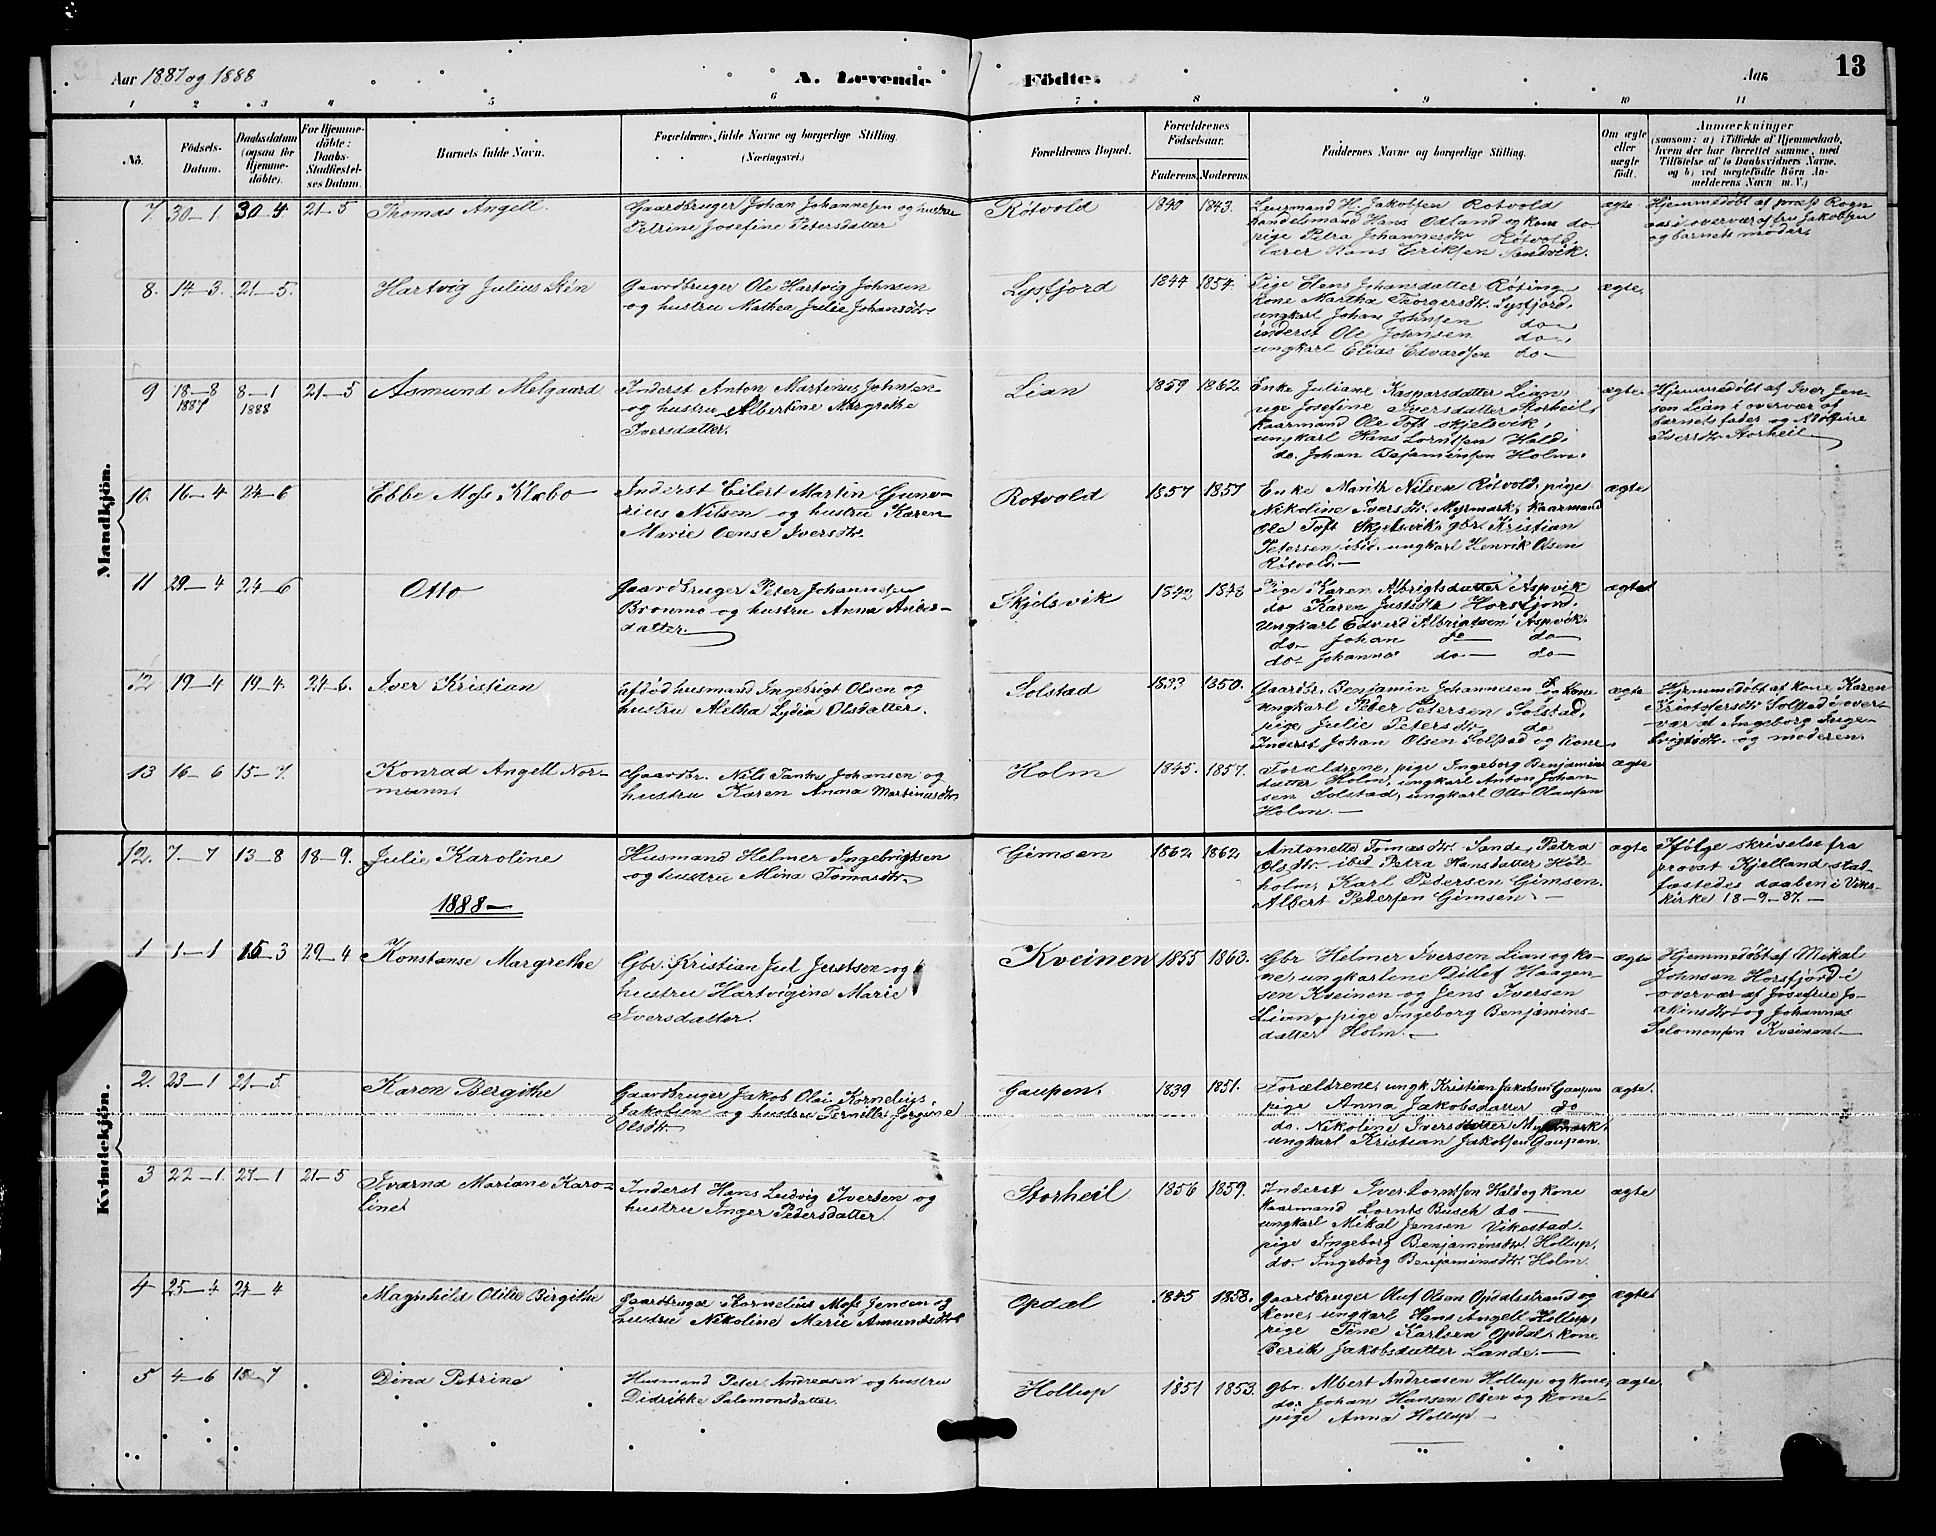 Aar 1887 og 1888
A. Levende Födte.
Aar
13
1 2 3 4 5 6 7 8 9 10 11
No.
Födsels-Datum.
Daabsdatum (ogsaa for Hjemmedöbte).
For Hjemmedöbte: Daabs-Stadfæstelses Datum.
Barnets fulde Navn.
Forældrenes fulde Navne og borgerlige Stilling. (Næringsvei.)
Forældrenes Bopæl.
Forældrenes Födselsaar.
Faderens. Moderens.
Faddernes Navne og borgerlige Stilling.
Om ægte eller uægte födt.
Anmærkninger (saasom: a) i Tilfælde af Hjemmedaab, hvem der har forrettet samme, med Tilföielse af to Daabsvidners Navne, og b) ved uægtefödte Börn Anmelderens Navn m. V.)
Mandkjön.
7 30-1 30-4 21-5 Thomas Angell.
Gaardbruger Johan Johannesen og hustru
Petrine Josefine Petersdatter
Rötvold 1840 1843.
Leusmand H. Jakobsen Rotvold
handelsmand Hans Odland og kone do
pige Petra Johannesdtr Rötvold
lærer Hans Eriksen Sandvik.
ægte
Hjemmedöbt af
i overvær af fru Jakobsen
og barnets moder.
8. 14-3. 21-5. Hartvig Julius Stén
Gaardbruger Ole Hartvig Johnsen
og hustru Mathea Julie Johansdtr.
Lysfjord 1844 1854.
Pige Elens Johansdatter Röting
kone Martha Thorgersdtr. Lysfjord,
ungkarl Johan Johnsen do
inderst Ole Johnsen do
ungkarl Elias Edvardsen do
ægte.
9 18-8 1887 8-1 1888 21-5 Asmund Melgaard
Inderst Anton Martinus Johnsen
og hustru Albertine Margrethe
Iversdatter.
Lian 1859 1862.
Enke Juliane Kasparsdatter Lian
pige Josefine Iversdatter Storheil,
kaarmand Ole Toft Skjelsvik,
ungkarl Hans Lorntsen Hald,
do. Johan Benjaminsen Holm.
ægte.
Hjemmedöbt af Iver Jen-
sen Lian i overvær af
barnets fader og Adolfine
Iversdtr Storheil
10. 16-4 24-6 Ebbe Moss Klæbo
Inderst Eilert Martin Gune-
rius Nilsen og hustru Karen
Marie Oense Iversdtr.
Rotvold 1857 1857
Enke Marith Nilsen Rötvold, pige
Nikoline Iversdtr. Myrmark, kaarmand
Ole Toft Skjelsvik, gbr. Kristian
Petersen ibid. ungkarl Henrik Olsen
Rötvold.
ægte
11 29-4 24-6 Otto
Gaardbruger Peter Johannesen
og hustru Anna Anders-
datter
Skjelsvik 1842 1848
Pige Karen Albrigtsdatter Aspvik
do Karen Justsdtr Horsfjord.
Ungkarl Edverd Albrigtsen Aspvik.
do Johan do do
do Johannes do do
ægte.
12 19-4 19-4. 24-6. Iver Kristian
afdöd husmand Ingebrigt Olsen og
hustru Aletha Lydia Olsdatter.
Solstad 1833 1850.
Gaardbr. Benjamin Johannesen og kone
Ungkarl Peder Petersen Solstad,
pige Julie Petersdtr do
Inderst Johan Olsen Solstad og kone.
ægte
Hjemmedöbt af kone Karen
Kristofersdtr Solstad i over-
vær af Ingeborg Inge-
brigtsdtr. og moderen.
13 16-6 15-7. Konrad Angell Nor-
mann.
Gaardbr. Nils Tanke Johansen og
hustru Karen Anna Martinusdtr.
Holm 1845. 1857.
Forældrene, pige Ingeborg Benjamins
datter Holm, ungkarl Anton Johan-
sen Solstad, ungkarl Otto Olausen
Holm.
ægte
Kvindekjön.
12. 7-7 13-8 18-9. Julie Karoline
Husmand Helmer Ingebrigtsen
og hustru Mina Tomasdtr.
Gimsen 1862 1862
Antonette Tomasdtr. Sande, Petra
Olsdtr. ibid Petra Hansdatter Hol-
holm, Karl Pedersen Gimsen.
Albert Pedersen Gimsen.
ægte
Ifölge skrivelse fra
provst Kjelland stad-
fæstedes daaben i Viks
kirke 18-9-87.
1888
1 1-1 15-3 29-4 Konstanse Margrethe
Gbr. Kristian Jul Justsen og
hustru Hartvigine Marie
Iversdatter.
Kveinen 1855 1863.
Gbr Helmer Iversen Lian og ko-
ne, ungkarlene Ditlef Haagen-
sen Kveinen og Jens Iversen
Lian, pige Ingeborg Benjamins-
datter Holm.
ægte
Hjemmedöbt af Mikal
Johnsen Horsfjord i
overvær af Josefine Jo-
akimsdtr og Johannes
Salomonsen Kveinen
2. 23-1 21-5. Karen Bergithe
Gaardbruger Jakob Olai Kornelius
Jakobsen og hustru Pernille Jörgine
Olsdtr
Gaupen. 1839 1851.
Forældrene, ungk Kristian Jakobsen Gaupen
pige Anna Jakobsdatter do
do. Nikoline Iversdatter Myrmark
ungkarl Kristian Jakobsen Gaupen.
ægte.
3 22-1. 27-1 21-5 Ivarna Mariane Karo-
line
Inderst Hans Ludvig Iversen og
hustru Inger Pedersdatter.
Storheil 1856 1859.
Inderst Iver Lorntsen Hald og kone
Kaarmand Lornts Busch do
ungkarl Mikal Jensen Vikestad.
pige Ingeborg Benjaminsdtr. Hollup,
do. Ingeborg Benjaminsdtr. Holm.
ægte
4 25-4 24-4 Magnhild Otilie Birgithe
Gaardbruger Kornelius Moss Jensen og
hustru Nikoline Marie Amundsdtr
Opdal 1845 1858.
Gaardbruger Oluf Olsen Opdalstrand og
kone, ungkarl Hans Angell Hollup,
pige Tene Karlsen Opdal, kone
Berith Jakobsdatter Lande.
ægte
5 4-6 15-7 Dina Petrine
Husmand Peter Andreasen og hustru
Didrikke Salomonsdatter.
Hollup 1851 1853.
Gbr. Albert Andreasen Hollup og kone,
do. Johan Hansen Osen og kone
pige Anna Hollup
ægte.